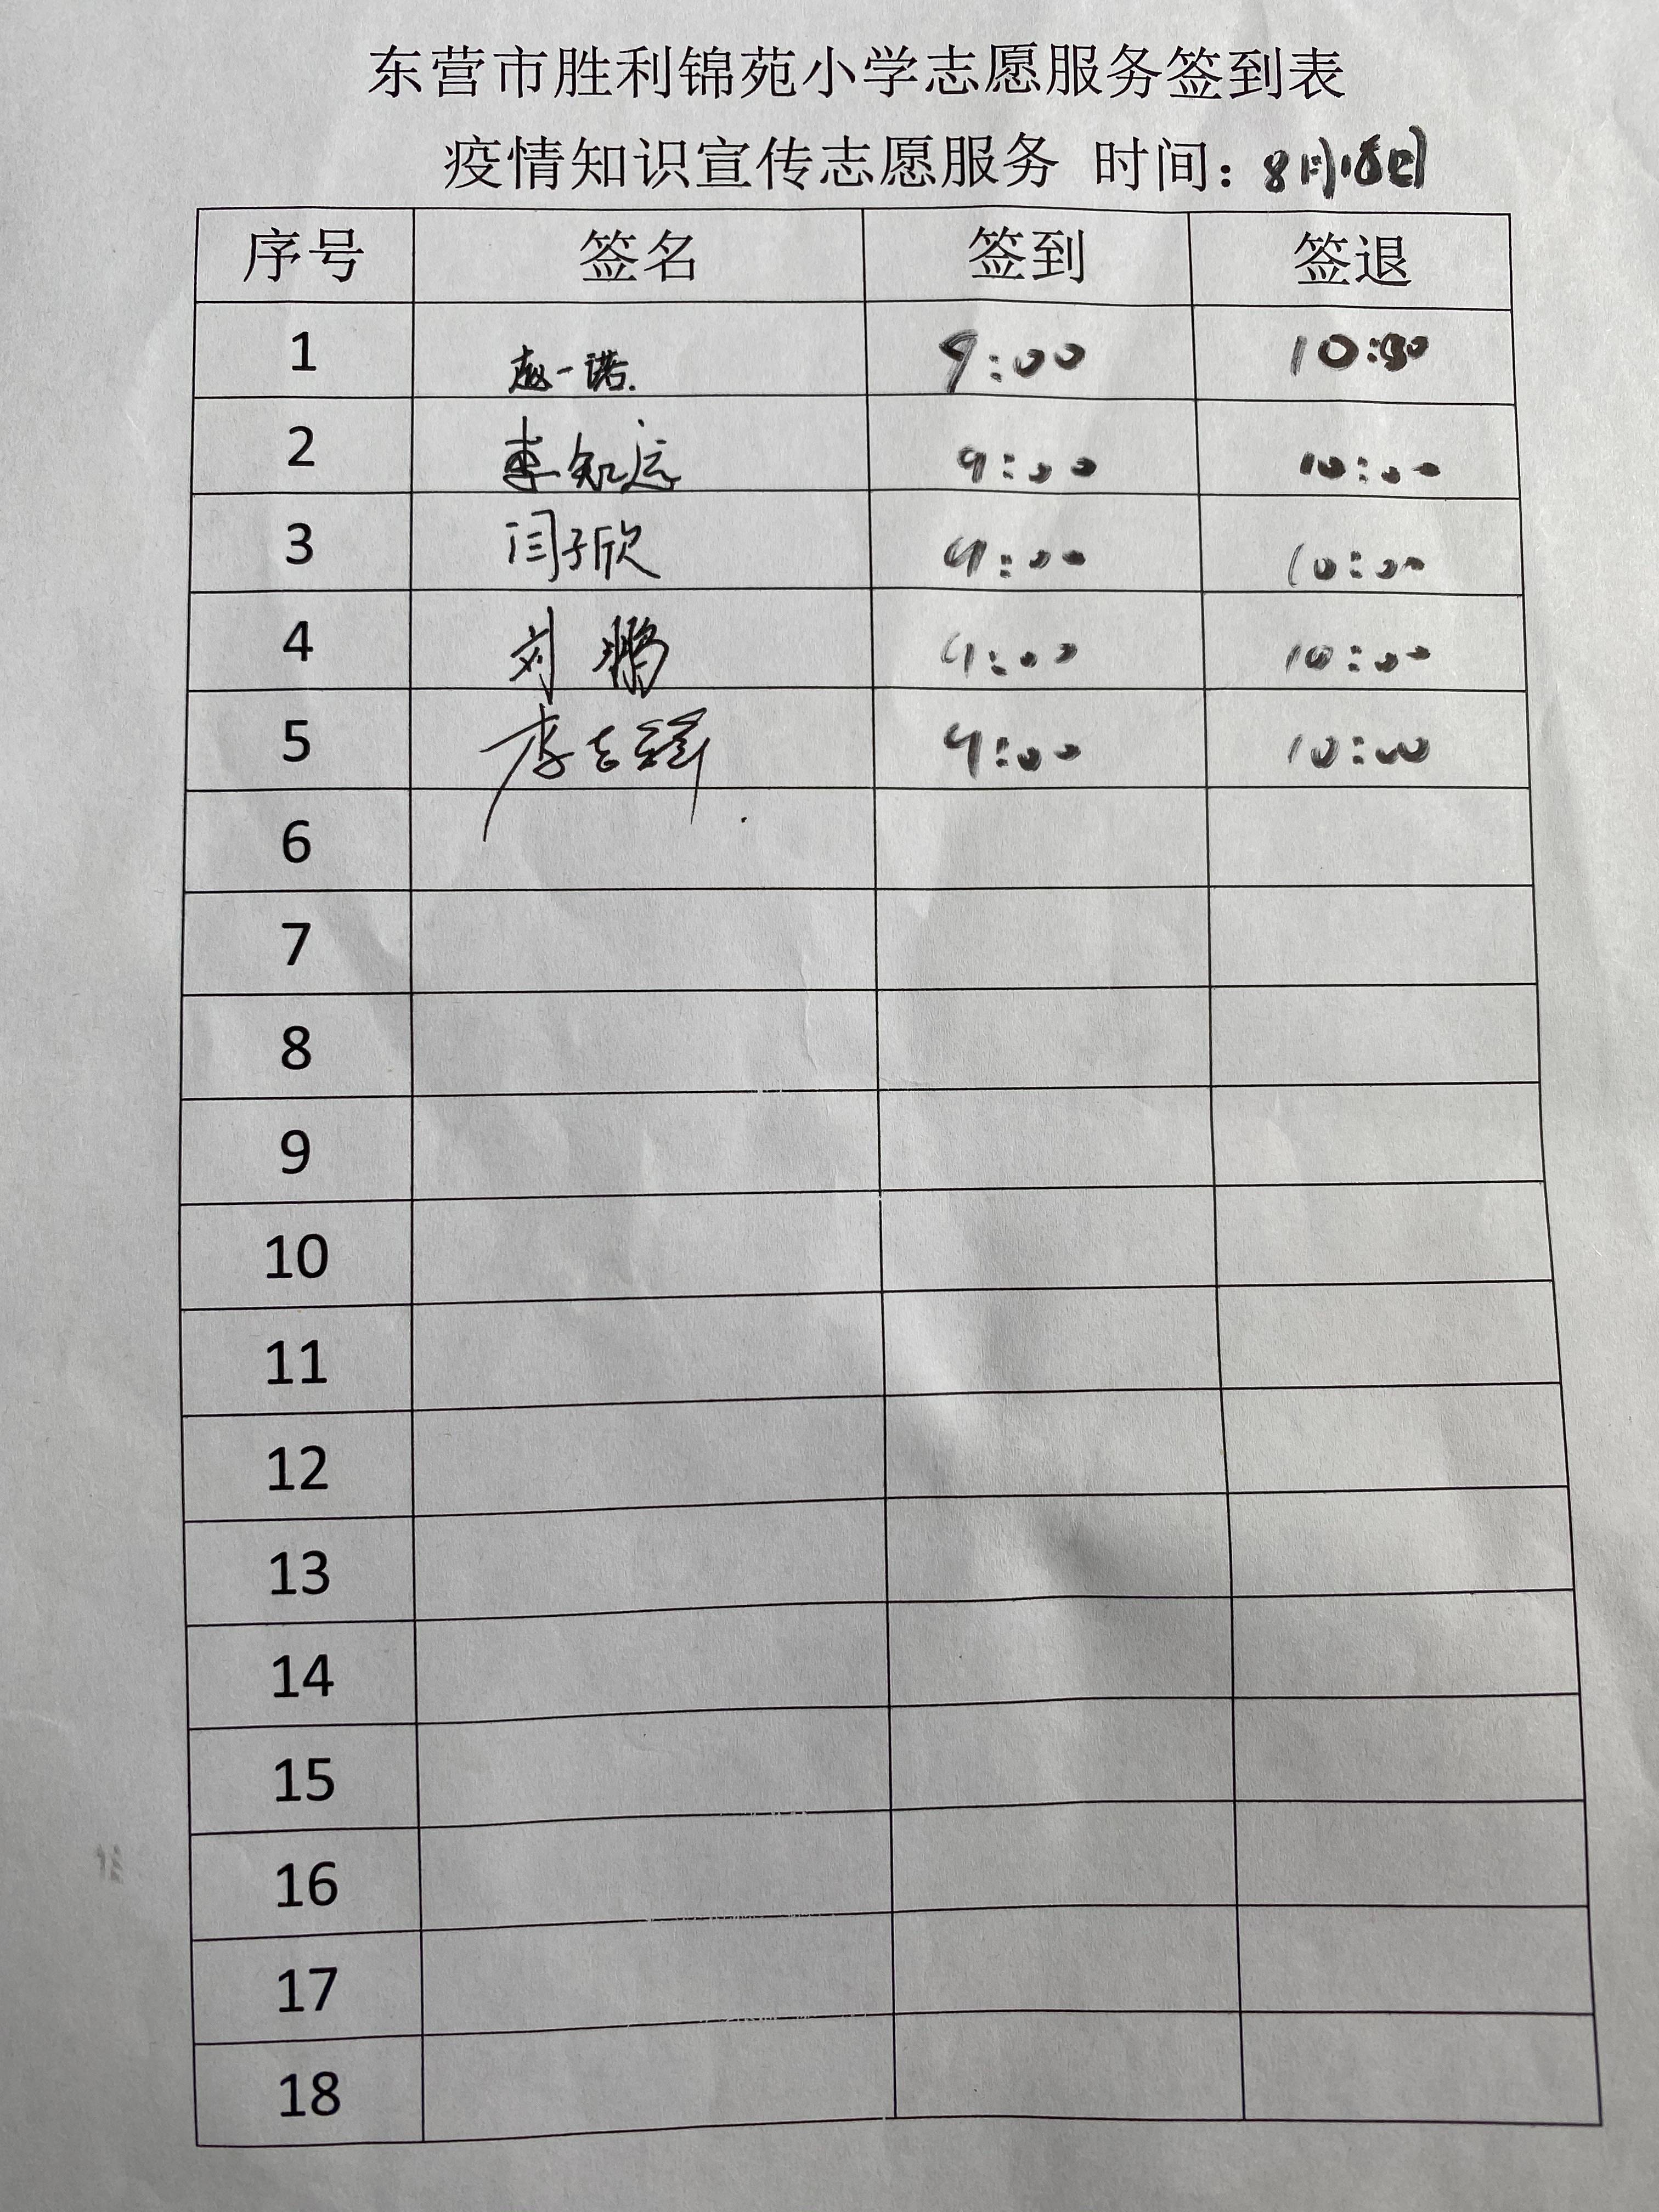 东营市胜利锦苑小学志愿服务签到表
疫情知识宣传志愿服务 时间：8月18日
序号 签名 签到 签退
1 赵一诺. 9:00 10:00
2 李知远 9:00 10:00
3 闫子欣 9:00 10:00
4 刘鹏 9:00 10:00
5 李志 9:00 10:00
6
7
8
9
10
11
12
13
14
15
16
17
18